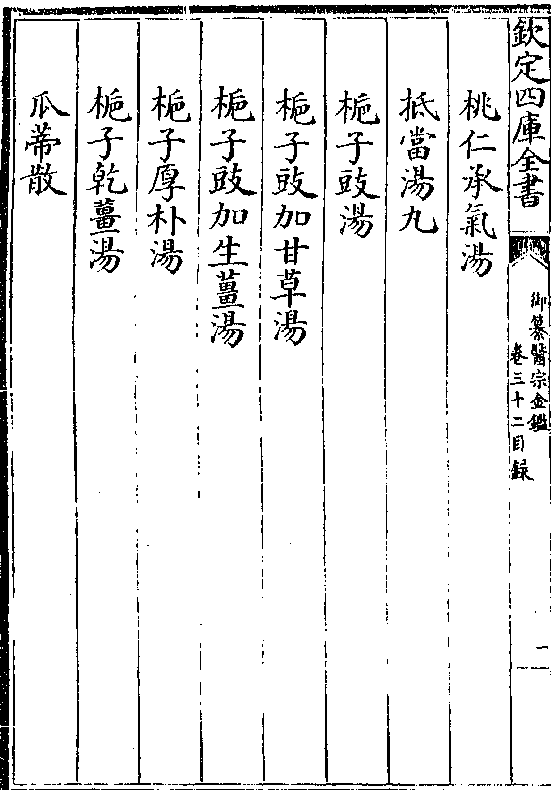 欽定四庫全書
御纂醫宗金鑑
卷三十二目録
一
桃仁承氣湯
抵當湯丸
梔子豉湯
梔子豉加甘草湯
梔子豉加生薑湯
梔子厚朴湯
梔子乾薑湯
瓜蒂散